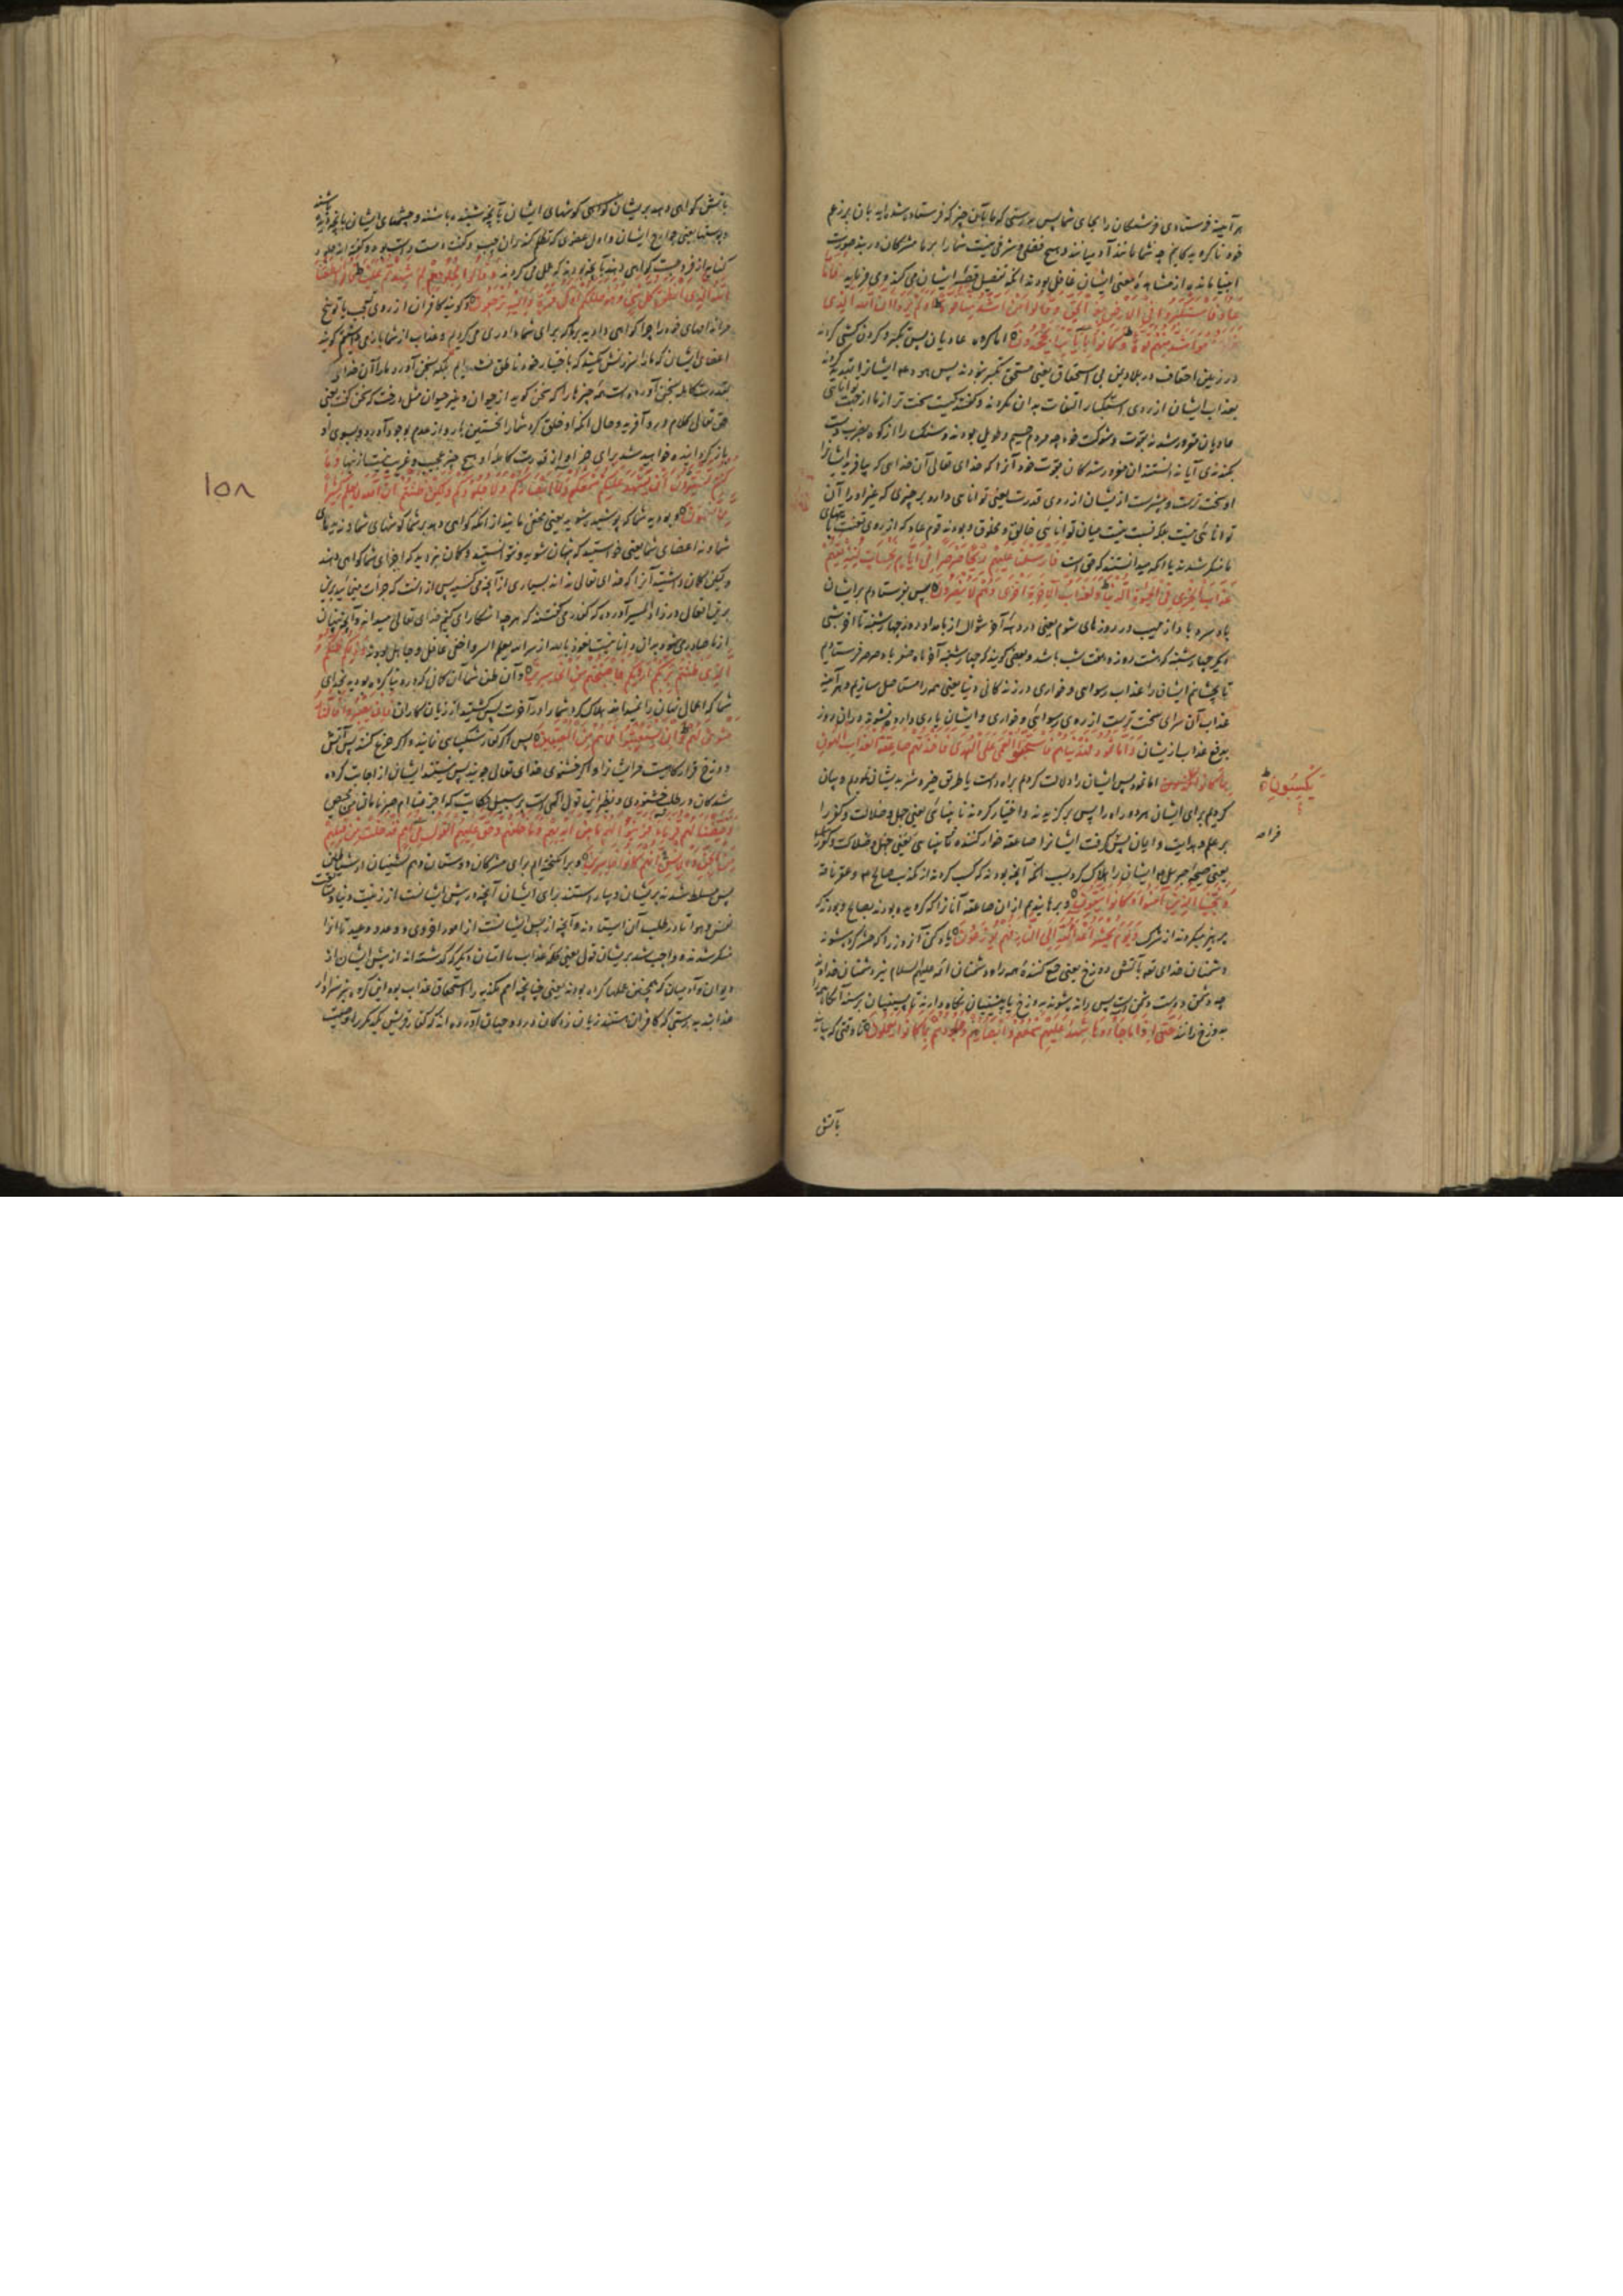 هر آینه فرستادی فرشتگان را بجای شما پس بدرستی که ما بآن چیز که فرستاده شده اید بان بزعم
خود ناکرویدکانیم چه شما مانند آدمیانید و هیچ فضل و شرفی نیست شما را بر ما مشرکان در بند صورت
انبیا مانده از مشاهده معنی ایشان غافل بودند آنکه تفصیل قصه ایشان می کند و می فرماید فاما
عاد فاستکبروا فی الارض بغیر الحق و قالوا من اشد منا قوة اولم یروا ان الله الذی
خلقهم هو اشد منهم قوة و کانوا بآیاتنا یجحدون اما کروه عادیان پس تکبر و کردن کشی کردند
در زمین احقاف در بلاد یمن بی استحقاق یعنی مستحق تکبر نبودند پس هود ایشانرا تهدید کرد
بعذاب ایشان از روی استکبار التفات بدان نکردند و گفتند کیست سخت تر از ما از جهت توانائی
عادیان مغرور شدند بقوت و شوکت خود چه مردم جسیم و طویل بودند و سنک را از کوه بضرب دست
بکندندی آیا ندانستند ان مغرور شدکان بقوت خود آنرا که خدای تعالی آن خدایی که بیافرید ایشانرا
او سخت ترست و بیشترست از ایشان از روی قدرت یعنی توانایی دارد بر چیزی که غیر او را آن
توانائی نیست بلکه نسبت نیست میان توانایی خالق و مخلوق و بودند قوم عاد که از روی تعنت بآیتهای
ما منکر شدند با آنکه میدانستند که حق است فارسلنا علیهم ریحا صرصرا فی ایام نحسات لنذیقهم
عذاب الخزی فی الحیوة الدنیا و لعذاب الآخرة اخزی و هم لا ینصرون پس بفرستادم بر ایشان
باد سرد با داز مهیب در روزهای شوم یعنی در دهه آخر شوال از بامداد روز چهارشنبه تا آخر شبی
دیگر چهارشنبه که هشت روز و هفت شب باشد و بعضی کویند که چهارشنبه آخر ماه صفر باد صرصر فرستادیم
تا بچشانم ایشان را عذاب رسوایی و خواری در زندکانی دنیا یعنی همه را مستاصل سازیم و هر آینه
عذاب آن سرای سخت ترست از روی رسوائی و خواری و ایشان یاری داده نشوند دران روز
بدفع عذاب از یشان و اما ثمود فهدیناهم فاستحبوا العمی علی الهدی فاخذتهم صاعقة العذاب الهون
بما کانوا یکسبون اما ثمود پس ایشان را دلالت کردم براه راست یا طریق خیر و شر به یشان نمودیم و بیان
کردیم برای ایشان هر دو راه را پس برکزیدند و اختیار کردند نابینائی یعنی جهل و ضلالت و کفر را
بر علم و هدایت و ایمان پس گرفت ایشانرا صاعقه خوار کننده
یعنی صیحه جبرئیل ایشان را هلاک کرد بسبب آنچه بودند که کسب کردند از تکذیب صالح و عقر ناقه
و نجینا الذین آمنوا و کانوا یتقون و برهانیدیم از ان صاعقه آنانرا که کرویده بودند بصالح و بودند که
پرهیز میکردند از شرک و یوم یحشر اعداء الله الی النار فهم یوزعون یاد کن آن روز را که حشر کرده شوند
دشمنان خدای تع بآتش دوزخ یعنی جمع کننده همه را و دشمنان ائمه علیهم السلام نیز دشمنان خدااند
چه دشمن دوست دشمن است پس رانده شوند بدوزخ یا پیشینیان نکاه دارند تا پسینیان برسند آنکاه همه را
بدوزخ رانند حتی اذا ما جاؤها شهد علیهم سمعهم و ابصارهم و جلودهم بما کانوا یعملون تا وقتی که بیایند
بآتش
یکسبون
بآتش کواهی دهد بریشان کواهی کوشهای ایشان بآنچه شنیده باشند و چشمهای ایشان بآنچه دیده باشند
و پوستها یعنی جوارح ایشان و اول عضوی که تکلم کند ران چپ و کف دست راست بود
کنایه از فروجست کواهی دهند بآنچه بودند که عمل می کردند و قالوا لجلودهم لم شهدتم علینا قالوا انطقنا
الله الذی انطق کل شیء و هو خلقکم اول مرة و الیه ترجعون و کویند کافران از روی تعجب یا توبیخ
مر اندامهای خود را چرا کواهی دادید بر ما که برای شما داوری می کردیم و عذاب از شما باز می داشتیم کویند
اعضای ایشان که ما را سرزنش مکنید که باختیار خود ناطق نشدیم بلکه بسخن آورد ما را آن خدای که
بقدرت کامله بسخن آورده است همه چیزها را که سخن کوید از حیوان و غیر حیوان مثل درخت که سخن گفت یعنی
حق تعالی کلام درو آفرید و حال آنکه او خلق کرد شما را نخستین بار و از عدم بوجود آورد و بسوی او
باز کردانیده خواهید شد برای جزا و از قدرت کامله او هیچ چیز عجیب و غریب نیست و ما
کنتم تستترون ان یشهد علیکم سمعکم و لا ابصارکم و لا جلودکم و لکن ظننتم ان الله لا یعلم کثیرا
مما تعملون و نبودید شما که پوشیده شوید یعنی مخفی مانید از آنکه کواهی دهد بر شما کوشهای شما و نه دیدهای
شما و نه اعضای شما یعنی خواستید که پنهان شوید و نتوانستید و کمان نبردید که اجزای شما کواهی دهند
و لیکن کمان داشتید آنرا که خدای تعالی نداند بسیاری از آنچه می کنید پس از آنست که جرات می نمائید برین
در زاد المسیر آورده که کفار می گفتند که هرچه آشکارای کنیم خدای تعالی میداند و آنچه پنهان
از ما صادر می شود بدان دانا نیست نعوذ بالله از سر انه یعلم السر و اخفی غافل و جاهل بودند و ذلکم ظنکم
الذی ظننتم بربکم اردیکم فاصبحتم من الخاسرین و آن ظن شما آن کمان که برده بودید بخدای
شما که اعمال نهان را نمیداند هلاک کرد شما را در آخرت پس کشتید از زیان کاران فان یصبروا فالنار
مثوی لهم و ان یستعتبوا فما هم من المعتبین پس اکر کفار شکیبایی نمایند و اکر جزع کنند پس آتش
دوزخ قرارکاهیست مر ایشانرا و اکر خشنودی خدای تعالی جویند پس نیستند ایشان از اجابت کرده
شدکان در طلب خشنودی و نظیر این قول الهی است بر سبیل حکایت سواء علینا اجزعنا ام صبرنا ما لنا من محیص
و قیضنا لهم قرناء فزینوا لهم ما بین ایدیهم و ما خلفهم و حق علیهم القول فی امم قد خلت من قبلهم
من الجن و الانس انهم کانوا خاسرین و برانکیخته ایم برای مشرکان دوستان و هم نشینان از شیاطین
پس مسلط شدند بریشان و بیاراستند برای ایشان آنچه در پیش ایشانست از زینت دنیا و متابعت
نفس و هوا تا در طلب آن ایستادند و آنچه از پس ایشانست از امور اخروی و وعد و وعید تا آنرا
منکر شدند و واجب شد بریشان قول یعنی کلمه عذاب با امتان دیگر که گذشته اند از پیش ایشان از
دیوان و آدمیان که همچنین عملها کرده بودند یعنی چنانچه امم مکذبه را استحقاق عذاب بود این کروه نیز سزاوار
عذابند بدرستی که کافران هستند زیان زدکان در دو جهان آورده اند که کفار قریش یکدیگر را وصیت
۱۰۸